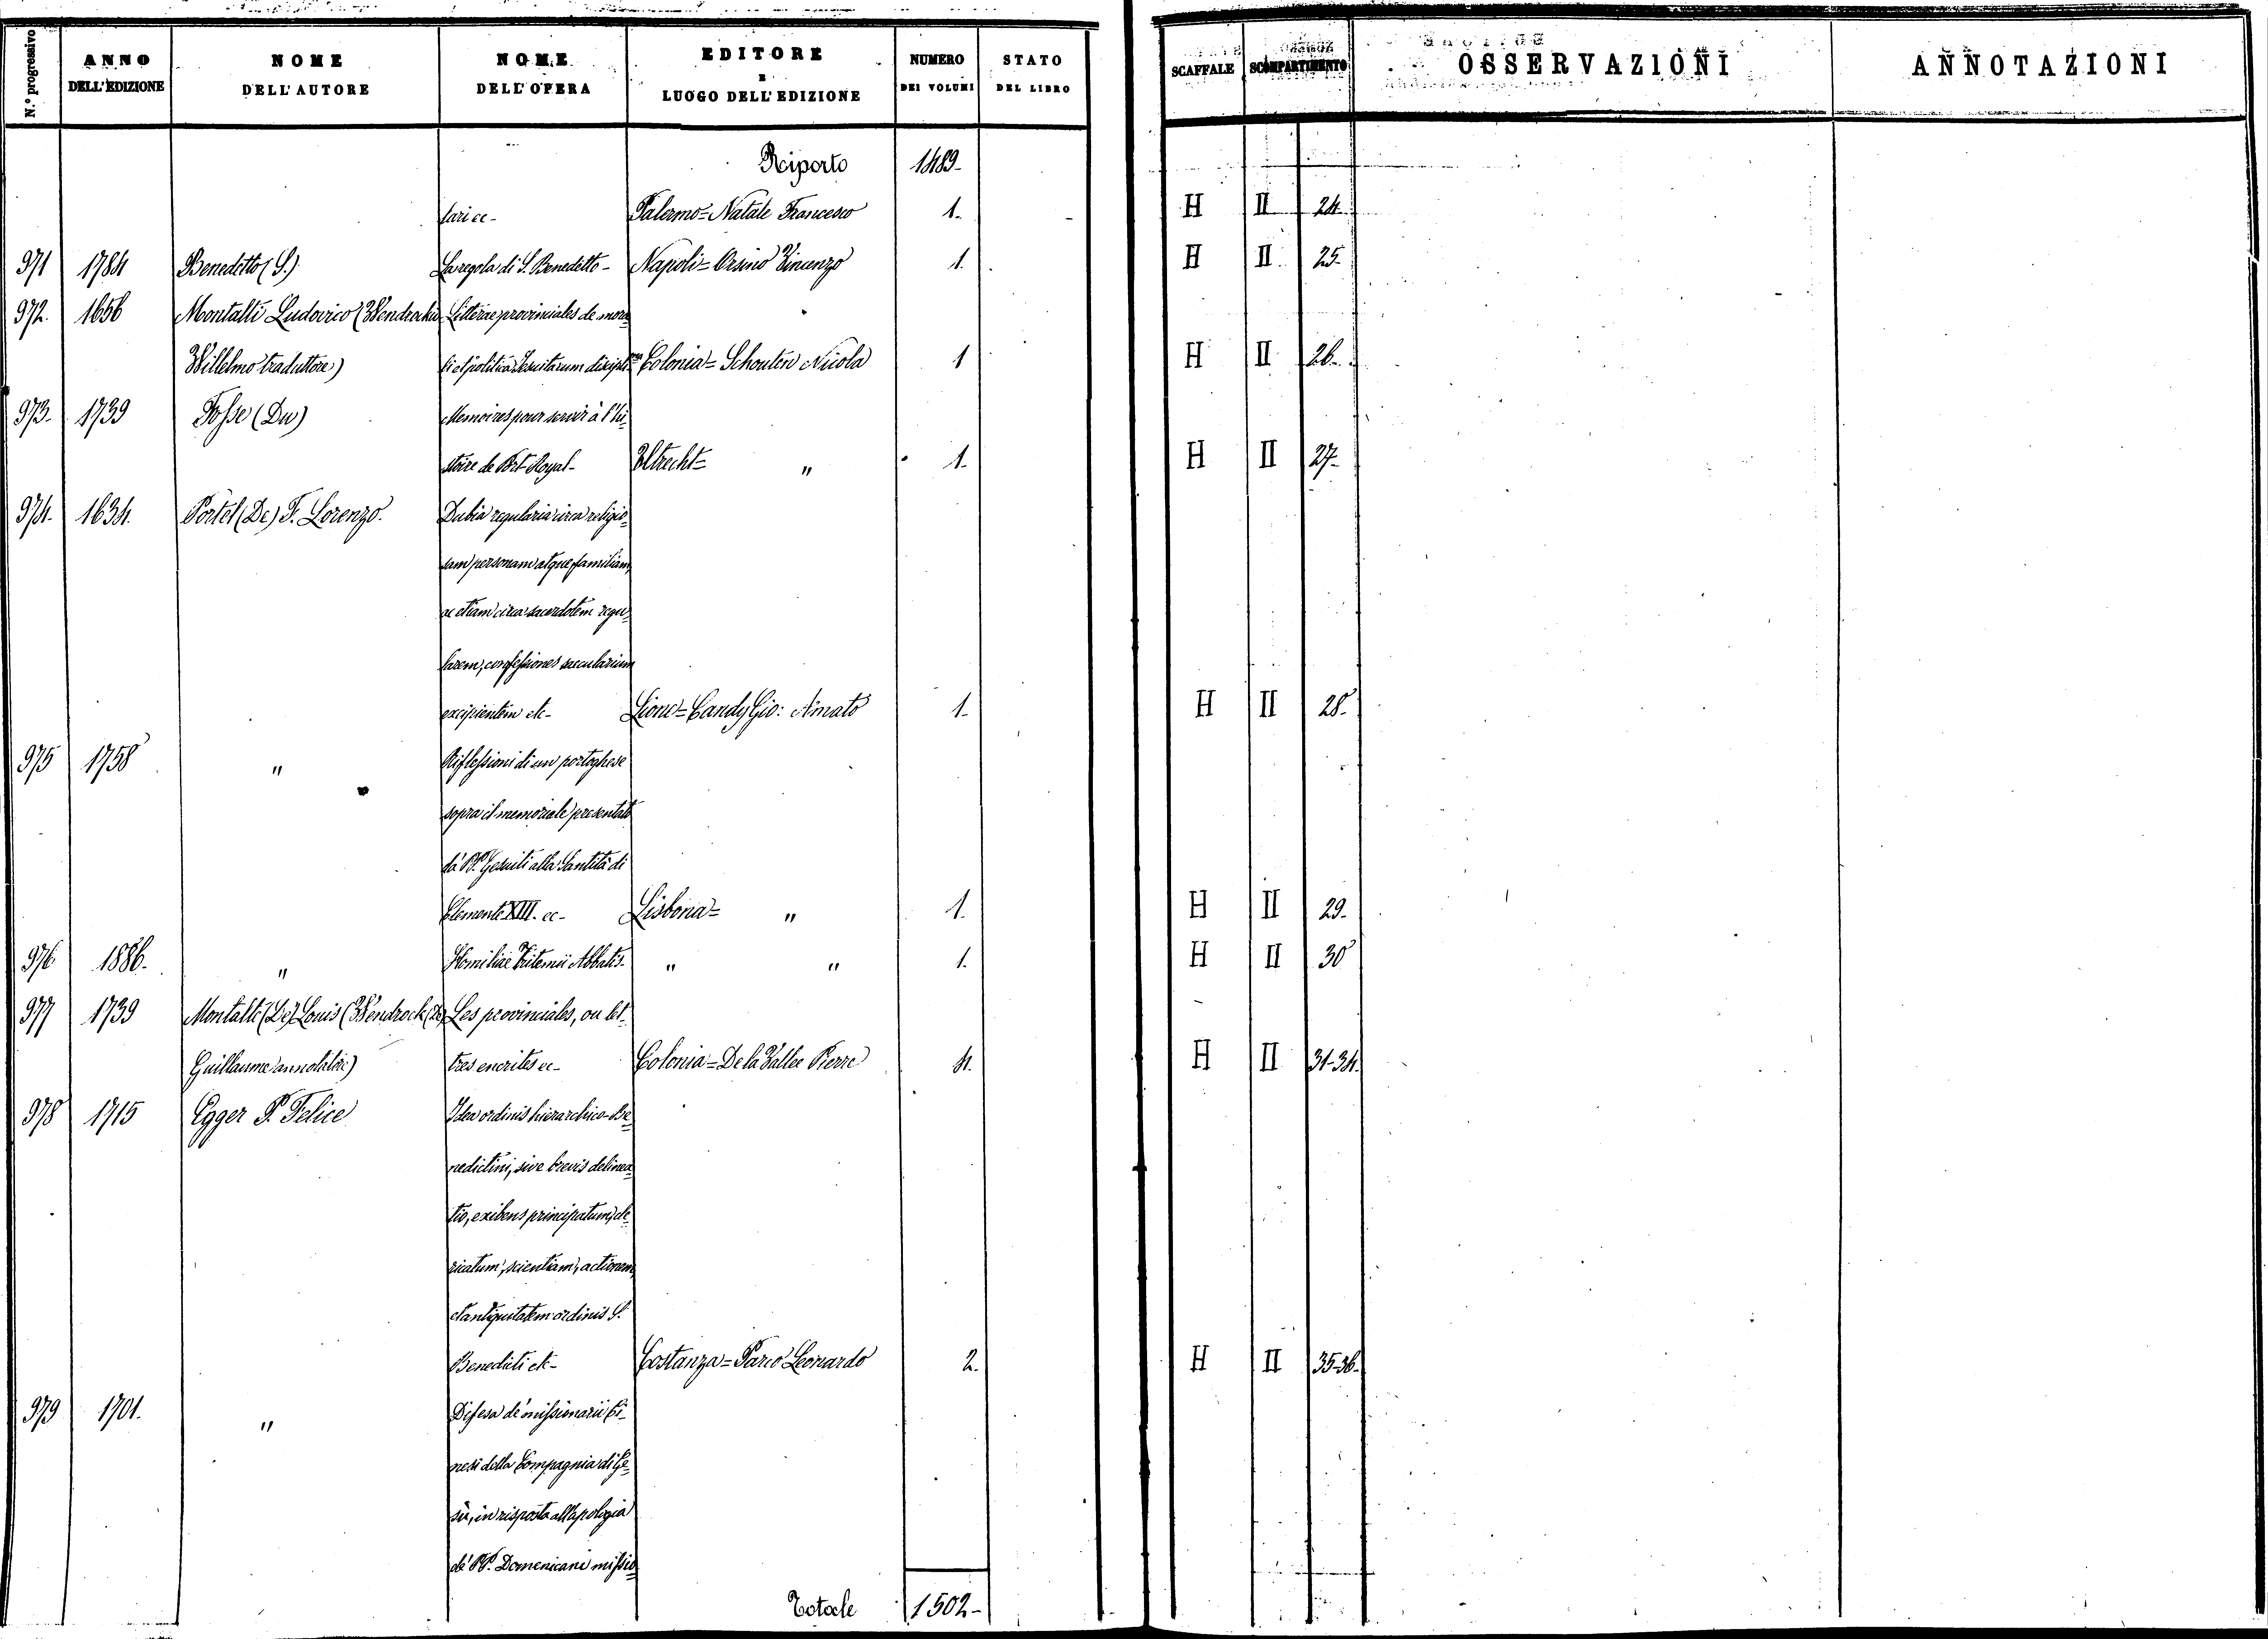 N.º progressivo ANNO DELL'EDIZIONE NOME DELL'AUTORE NOME DELL'OPERA EDITORE E LUOGO DELL'EDIZIONE NUMERO DEI VOLUMI STATO DEL LIBRO SCAFFALE SCOMPARTIMENTO OSSERVAZIONI ANNOTAZIONI
Riporto 1489-
lari ec- Palermo=Natale Francesco 1. H II 24.
971 1784 Benedetto (S.) La regola di S. Benedetto- Napoli=Orsino Vincenzo 1. H II 25.
972. 1656 Montalti Ludovico (Wendrockio Litterae provinciales de mora=
Willelmo traduttore) li et politica Jesuitarum discipli=na Colonia=Schouten Nicola 1 H II 26.
973. 1739 Fosse (Du) Memoires pour servir à l'hi=
stoire de Port-Royal- Utrecht= " 1. H II 27.
974. 1634. Portel (De) F. Lorenzo. Dubia regularia circa religio=
sam personam atque familiam,
ac etiam circa sacerdotem regu=
larem, confessiones saecularium
excipientem etc- Lione=Candy Gio: Amato 1. H II 28.
975 1758 " Riflessioni di un portoghese
sopra il memoriale presentato
da' PP. Gesuiti alla Santità di
Clemente XIII. ec- Lisbona= " 1. H II 29.
976 1886. " Homiliae Tritemii Abbatis- " " 1. H II 30
977 1739 Montalte (De) Louis (Wendrock (De) Les provinciales, ou let=
Guillaume annotatore) tres encrites ec- Colonia=De la Vallee Pierre 4. H II 31-34.
978 1715 Egger P. Felice Idea ordinis hierarchico-Be=
nedictini, sive brevis delinea=
tio, exibens principatum, cle=
ricatum, scientiam, actionem,
et antiquitatem ordinis S.
Benedicti etc- Costanza=Parco Leonardo 2. H II 35-36.
979 1701. " Difesa de' missionarii Ci=
nesi della Compagnia di Ge=
sù, in risposta all'apologia
de' PP. Domenicani missio=
Totale 1502-